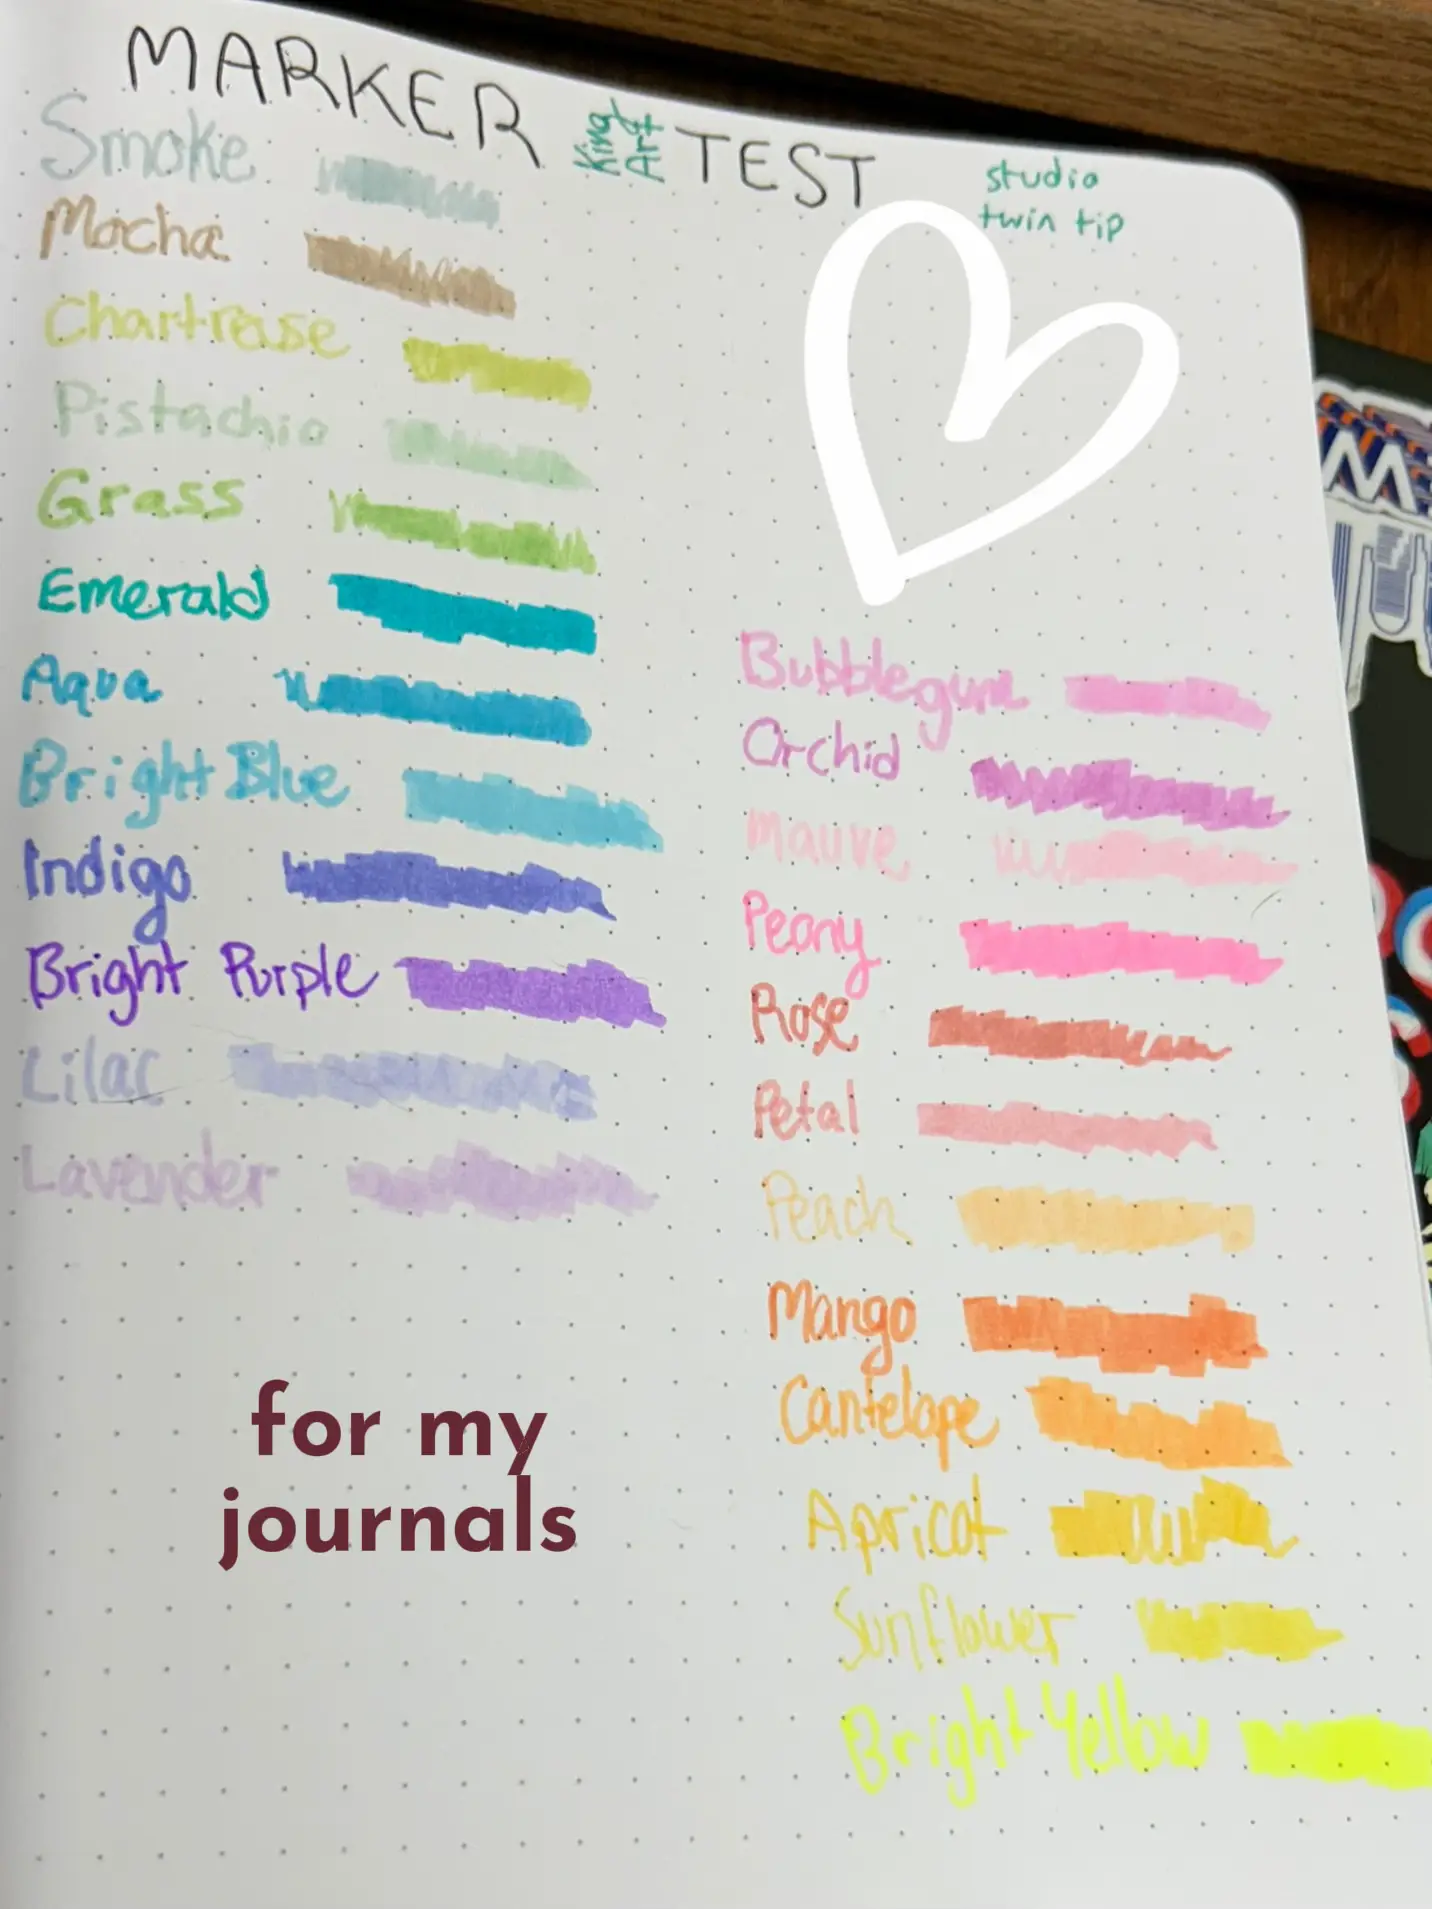 MARKER TEST
King Art
studio
twin tip
Smoke
Mocha
Chartreuse
Pistachio
Grass
Emerald
Aqua
Bright Blue
Indigo
Bright Purple
Lilac
Lavender
Bubblegum
Orchid
Mauve
Peony
Rose
Petal
Peach
Mango
Cantelope
Apricot
Sunflower
Bright Yellow
for my
journals